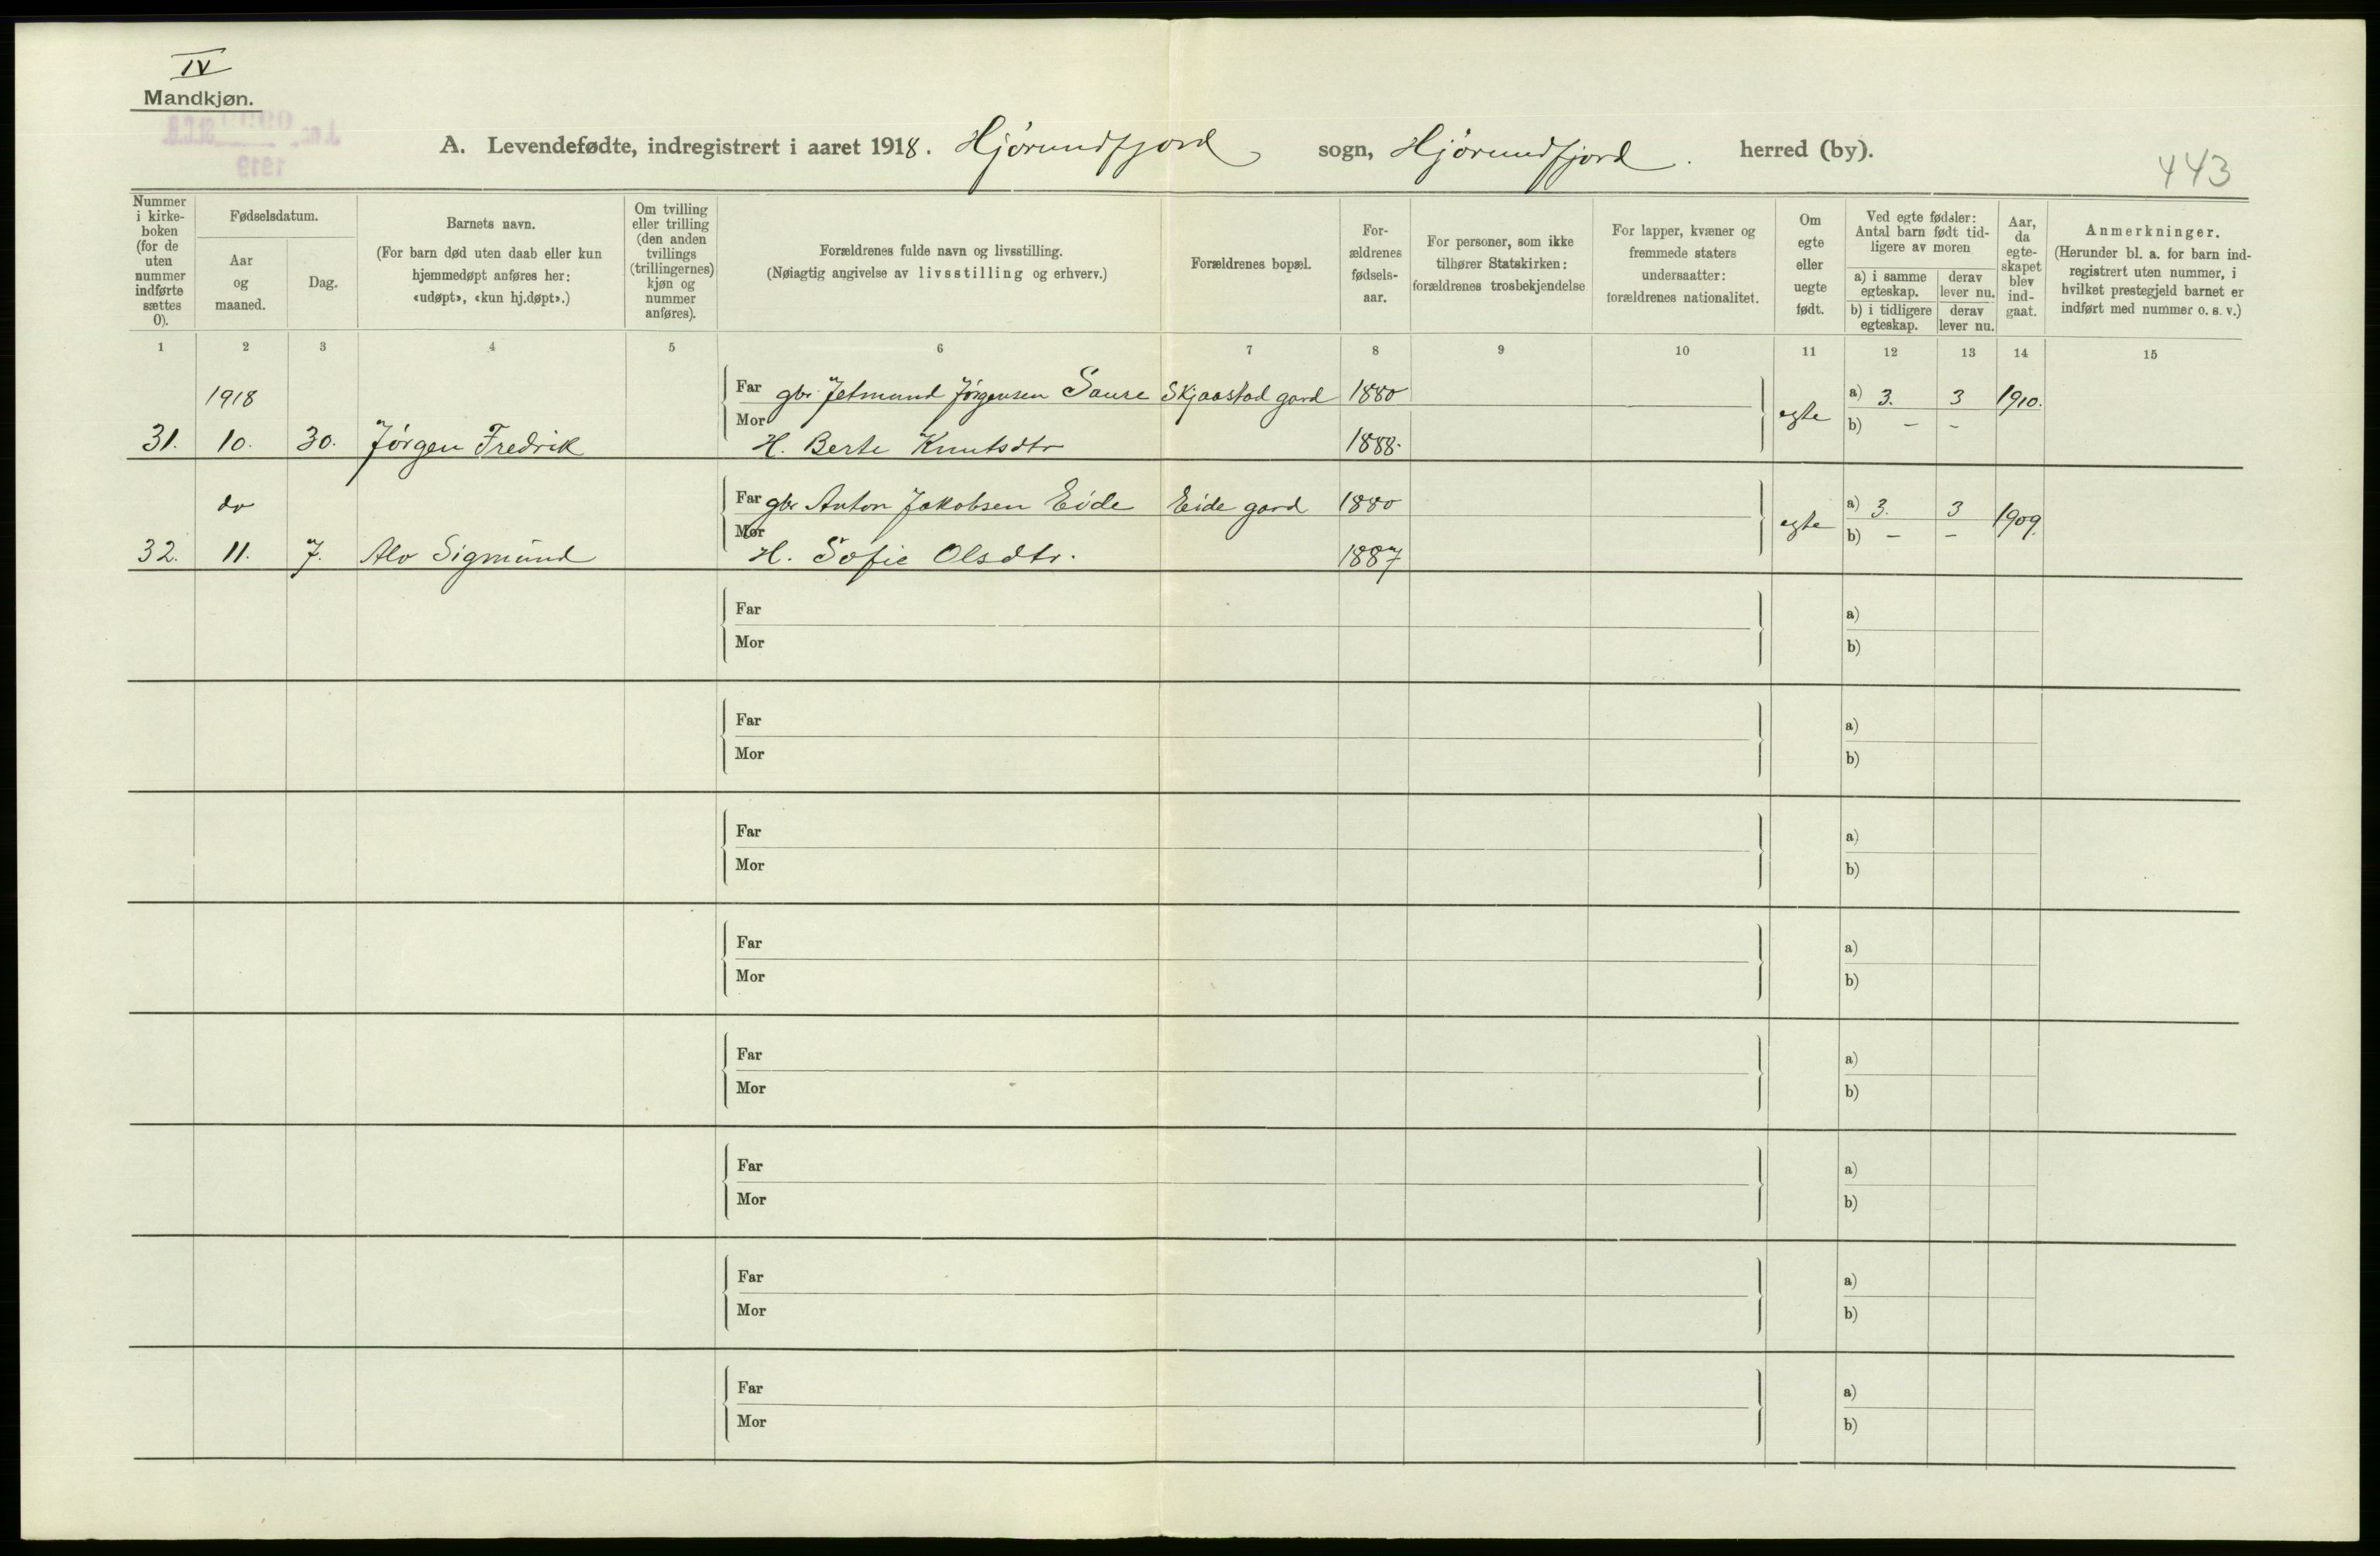 IV
Mandkjøn.
A. Levendefødte, indregistrert i aaret 1918. Hjørundfjord sogn, Hjørundfjord. herred (by).
443
Nummer i kirke-boken (for de uten nummer indførte sættes 0).
Fødselsdatum.
Aar og maaned.
Dag.
Barnets navn.
(For barn død uten daab eller kun hjemmedøpt anføres her: «udøpt», «kun hj.døpt».)
Om tvilling eller trilling (den anden tvillings (trillingernes) kjøn og nummer anføres).
Forældrenes fulde navn og livsstilling.
(Nøiagtig angivelse av livsstilling og erhverv.)
Forældrenes bopæl.
For-ældrenes fødsels-aar.
For personer, som ikke tilhører Statskirken: forældrenes trosbekjendelse
For lapper, kvæner og fremmede staters undersaatter: forældrenes nationalitet.
Om egte eller uegte født.
Ved egte fødsler: Antal barn født tid-ligere av moren
a) i samme egteskap.
derav lever nu.
b) i tidligere egteskap.
derav lever nu.
Aar, da egte-skapet blev ind-gaat.
Anmerkninger.
(Herunder bl. a. for barn ind-registrert uten nummer, i hvilket prestegjeld barnet er indført med nummer o. s. v.)
1 2 3 4 5 6 7 8 9 10 11 12 13 14 15
1918 Far gbr. Jetmund Jørgensen Saure Skjaastad gard 1880 egte a) 3. 3 1910.
31. 10. 30. Jørgen Fredrik Mor H. Berte Knutsdtr 1888. b) – –
do Far gbr Anton Jakobsen Eide Eide gard 1880 egte a) 3. 3 1909.
32. 11. 7. Alv Sigmund Mor H. Sofie Olsdtr. 1887 b) – –
Far a)
Mor b)
Far a)
Mor b)
Far a)
Mor b)
Far a)
Mor b)
Far a)
Mor b)
Far a)
Mor b)
Far a)
Mor b)
Far a)
Mor b)